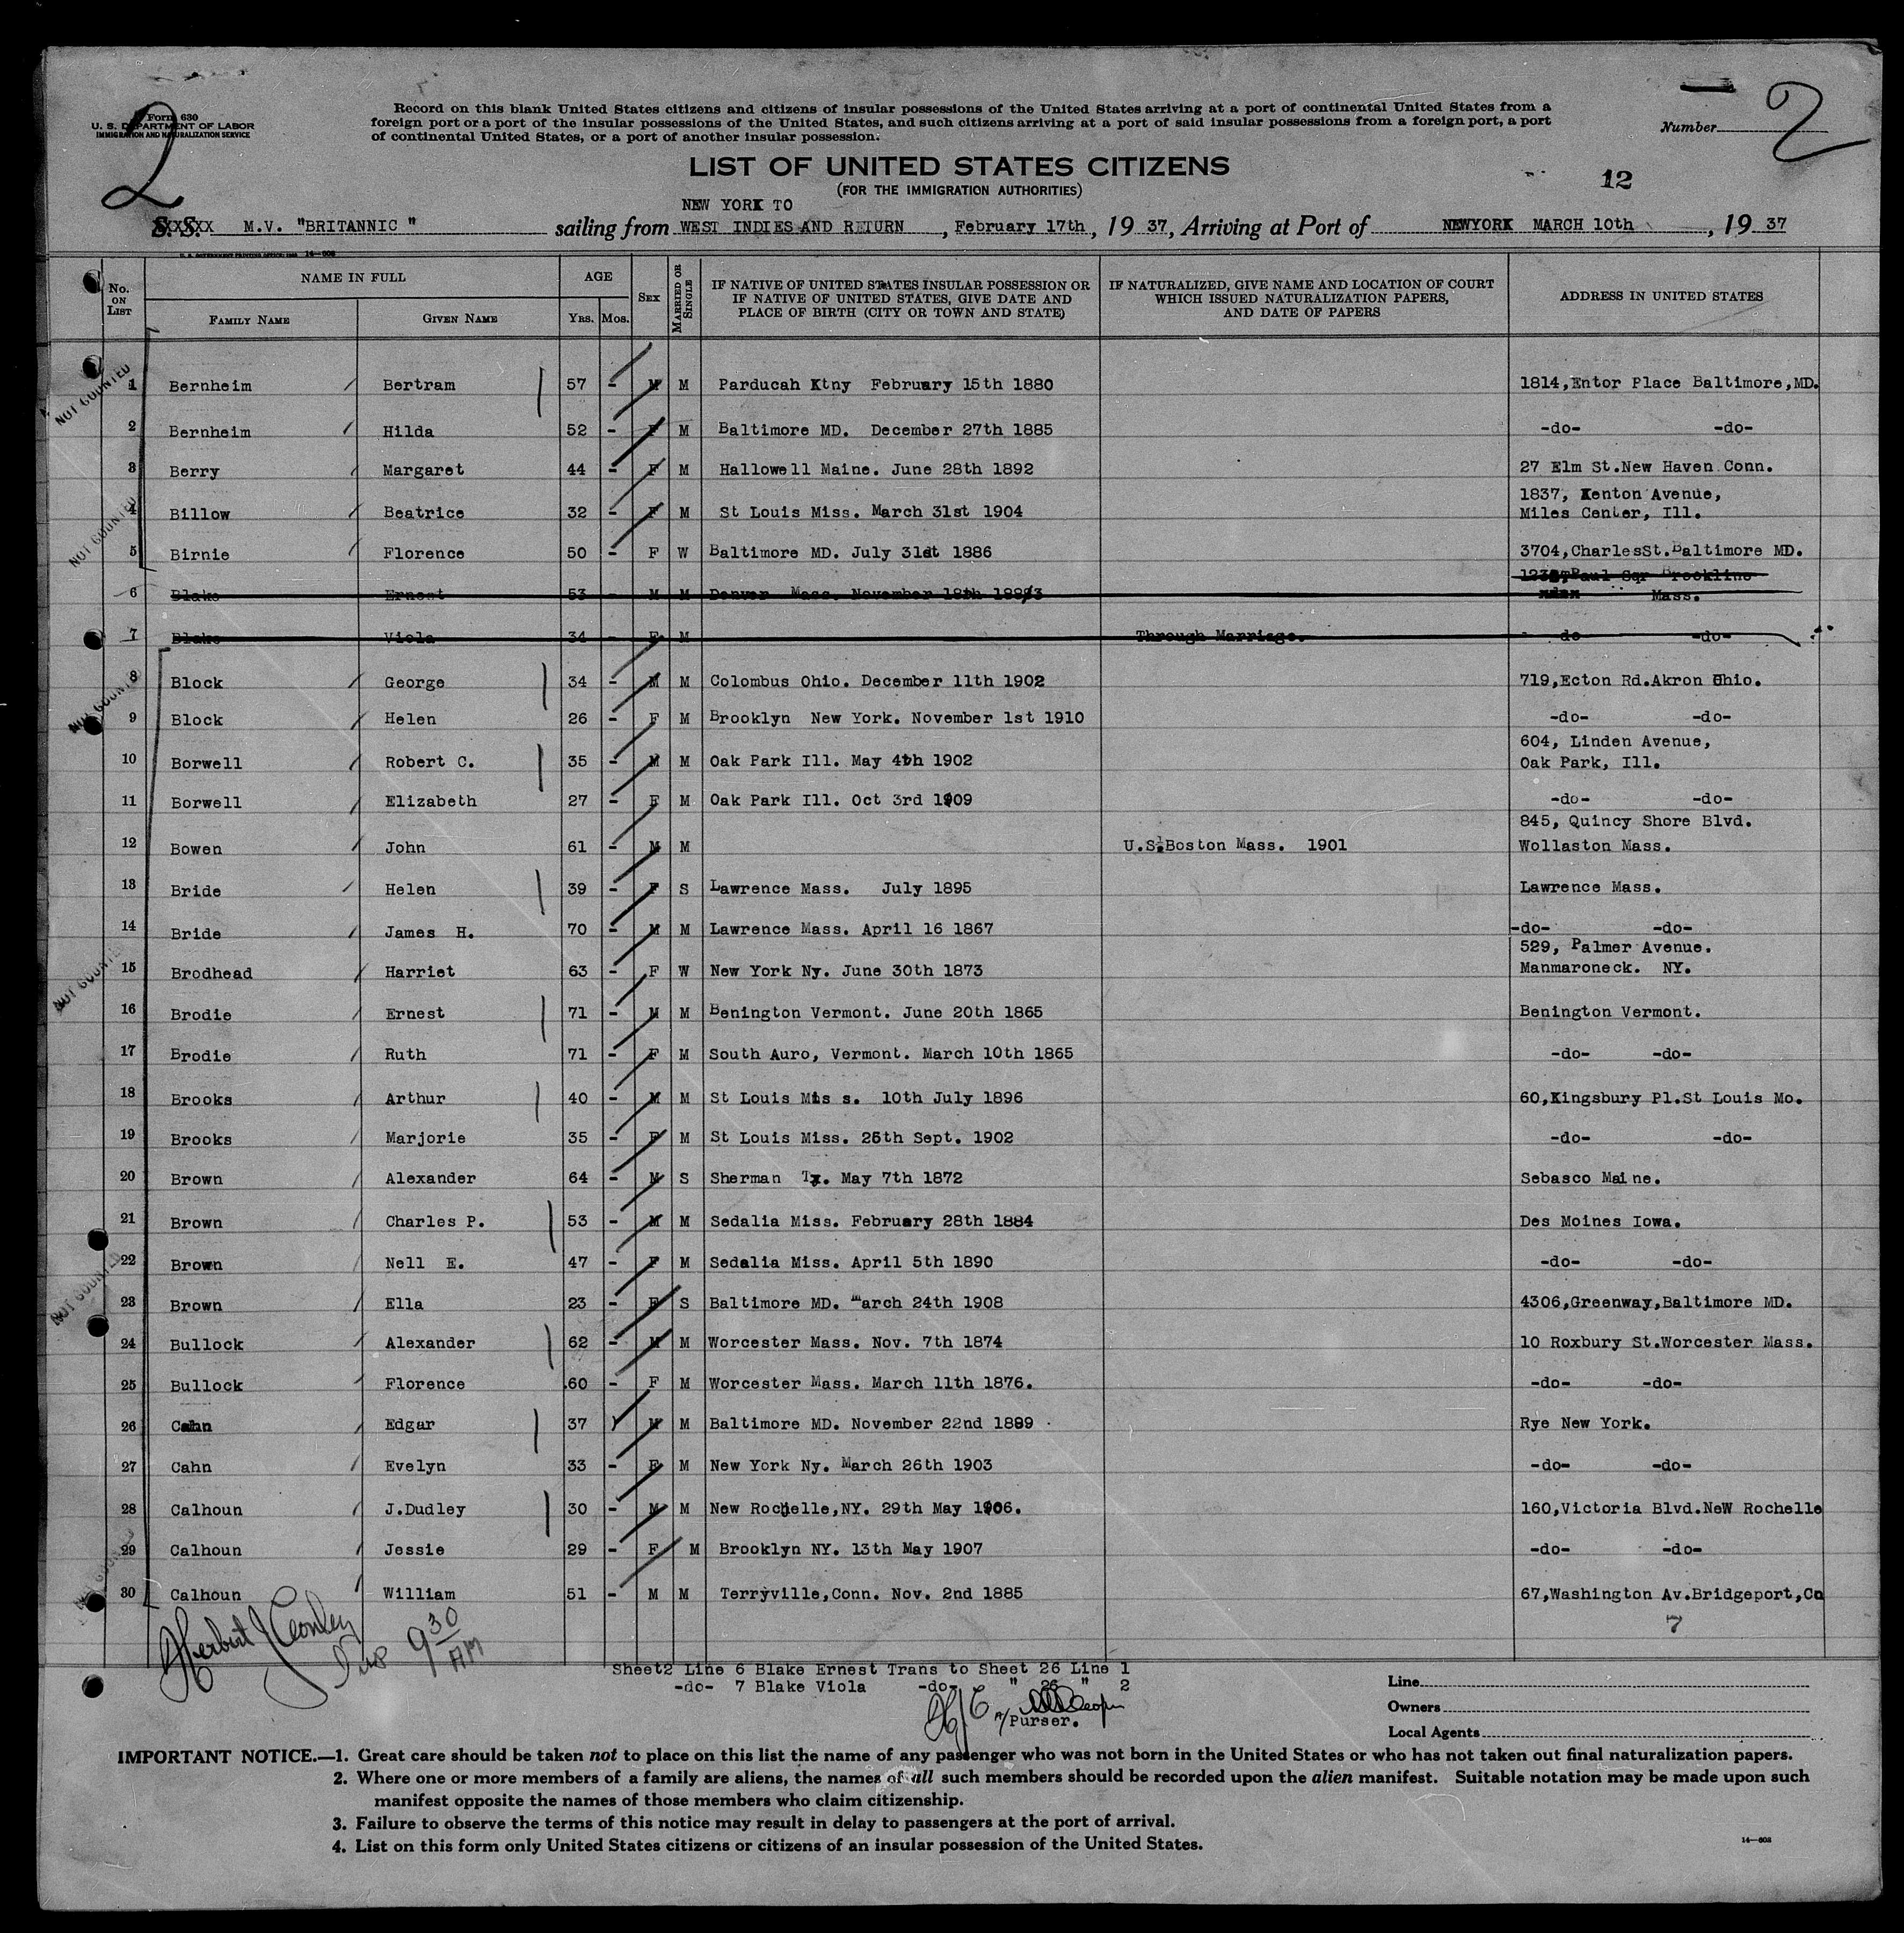 2
Form 630
U. S. DEPARTMENT OF LABOR
IMMIGRATION AND NATURALIZATION SERVICE
Record on this blank United States citizens and citizens of insular possessions of the United States arriving at a port of continental United States from a
foreign port or a port of the insular possessions of the United States, and such citizens arriving at a port of said insular possessions from a foreign port, a port
of continental United States, or a port of another insular possession.
Number 2
LIST OF UNITED STATES CITIZENS
(FOR THE IMMIGRATION AUTHORITIES)
12
NEW YORK TO
S. S. M.V. "BRITANNIC " sailing from WEST INDIES AND RETURN , February 17th , 19 37, Arriving at Port of NEWYORK MARCH 10th , 19 37
U. S. GOVERNMENT PRINTING OFFICE 14-608
No. ON LIST NAME IN FULL AGE SEX MARRIED OR SINGLE IF NATIVE OF UNITED STATES INSULAR POSSESSION OR IF NATIVE OF UNITED STATES, GIVE DATE AND PLACE OF BIRTH (CITY OR TOWN AND STATE) IF NATURALIZED, GIVE NAME AND LOCATION OF COURT WHICH ISSUED NATURALIZATION PAPERS, AND DATE OF PAPERS ADDRESS IN UNITED STATES
FAMILY NAME GIVEN NAME YRS. MOS.
NOT COUNTED
1 Bernheim Bertram 57 - M M Parducah Ktny February 15th 1880 1814,Entor Place Baltimore,MD.
2 Bernheim Hilda 52 - F M Baltimore MD. December 27th 1885 -do- -do-
3 Berry Margaret 44 - F M Hallowell Maine. June 28th 1892 27 Elm St.New Haven Conn.
1837, Kenton Avenue,
NOT COUNTED
4 Billow Beatrice 32 - F M St Louis Miss. March 31st 1904 Miles Center, Ill.
5 Birnie Florence 50 - F W Baltimore MD. July 31st 1886 3704,CharlesSt.Baltimore MD.
6 Blake Ernest 53 - M M Denver Mass. November 18th 1883 Mass.
7 Blake Viola 34 - F M Through Marriage. -do- -do-
NOT COUNTED
8 Block George 34 - M M Colombus Ohio. December 11th 1902 719,Ecton Rd.Akron Ohio.
9 Block Helen 26 - F M Brooklyn New York. November 1st 1910 -do- -do-
604, Linden Avenue,
10 Borwell Robert C. 35 - M M Oak Park Ill. May 4th 1902 Oak Park, Ill.
11 Borwell Elizabeth 27 - F M Oak Park Ill. Oct 3rd 1909 -do- -do-
845, Quincy Shore Blvd.
12 Bowen John 61 - M M U.S.Boston Mass. 1901 Wollaston Mass.
13 Bride Helen 39 - F S Lawrence Mass. July 1895 Lawrence Mass.
14 Bride James H. 70 - M M Lawrence Mass. April 16 1867 -do- -do-
529, Palmer Avenue.
NOT COUNTED
15 Brodhead Harriet 63 - F W New York Ny. June 30th 1873 Manmaroneck. NY.
16 Brodie Ernest 71 - M M Benington Vermont. June 20th 1865 Benington Vermont.
17 Brodie Ruth 71 - F M South Auro, Vermont. March 10th 1865 -do- -do-
18 Brooks Arthur 40 - M M St Louis Mis s. 10th July 1896 60,Kingsbury Pl.St Louis Mo.
19 Brooks Marjorie 35 - F M St Louis Miss. 25th Sept. 1902 -do- -do-
20 Brown Alexander 64 - M S Sherman Tx. May 7th 1872 Sebasco Maine.
21 Brown Charles P. 53 - M M Sedalia Miss. February 28th 1884 Des Moines Iowa.
22 Brown Nell E. 47 - F M Sedalia Miss. April 5th 1890 -do- -do-
NOT COUNTED
23 Brown Ella 23 - F S Baltimore MD. March 24th 1908 4306,Greenway,Baltimore MD.
24 Bullock Alexander 62 - M M Worcester Mass. Nov. 7th 1874 10 Roxbury St.Worcester Mass.
25 Bullock Florence 60 - F M Worcester Mass. March 11th 1876. -do- -do-
26 Cahn Edgar 37 M M Baltimore MD. November 22nd 1899 Rye New York.
27 Cahn Evelyn 33 - F M New York Ny. March 26th 1903 -do- -do-
28 Calhoun J.Dudley 30 - M M New Rochelle,NY. 29th May 1906. 160,Victoria Blvd.NeW Rochelle
29 Calhoun Jessie 29 - F M Brooklyn NY. 13th May 1907 -do- -do-
NOT COUNTED
30 Calhoun William 51 - M M Terryville,Conn. Nov. 2nd 1885 67,Washington Av.Bridgeport,Cn
7
Herbert J Conley
Insp 9 30 AM
Sheet2 Line 6 Blake Ernest Trans to Sheet 26 Line 1
-do- 7 Blake Viola -do- " 26 " 2
A/Purser.
Line
Owners
Local Agents
IMPORTANT NOTICE.—1. Great care should be taken not to place on this list the name of any passenger who was not born in the United States or who has not taken out final naturalization papers.
2. Where one or more members of a family are aliens, the names of all such members should be recorded upon the alien manifest. Suitable notation may be made upon such
manifest opposite the names of those members who claim citizenship.
3. Failure to observe the terms of this notice may result in delay to passengers at the port of arrival.
4. List on this form only United States citizens or citizens of an insular possession of the United States.
14—608